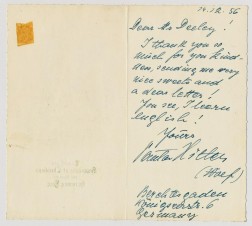 24.12.56
Dear Mr Deeley!
I thank you so
much for your kind-
ness, sending me very
nice sweets and
a dear letter!
You see, I learn
english!
Yours
Paula Hitler
(Wolf)
Berchtesgaden
Königsseerstr. 6
Germany